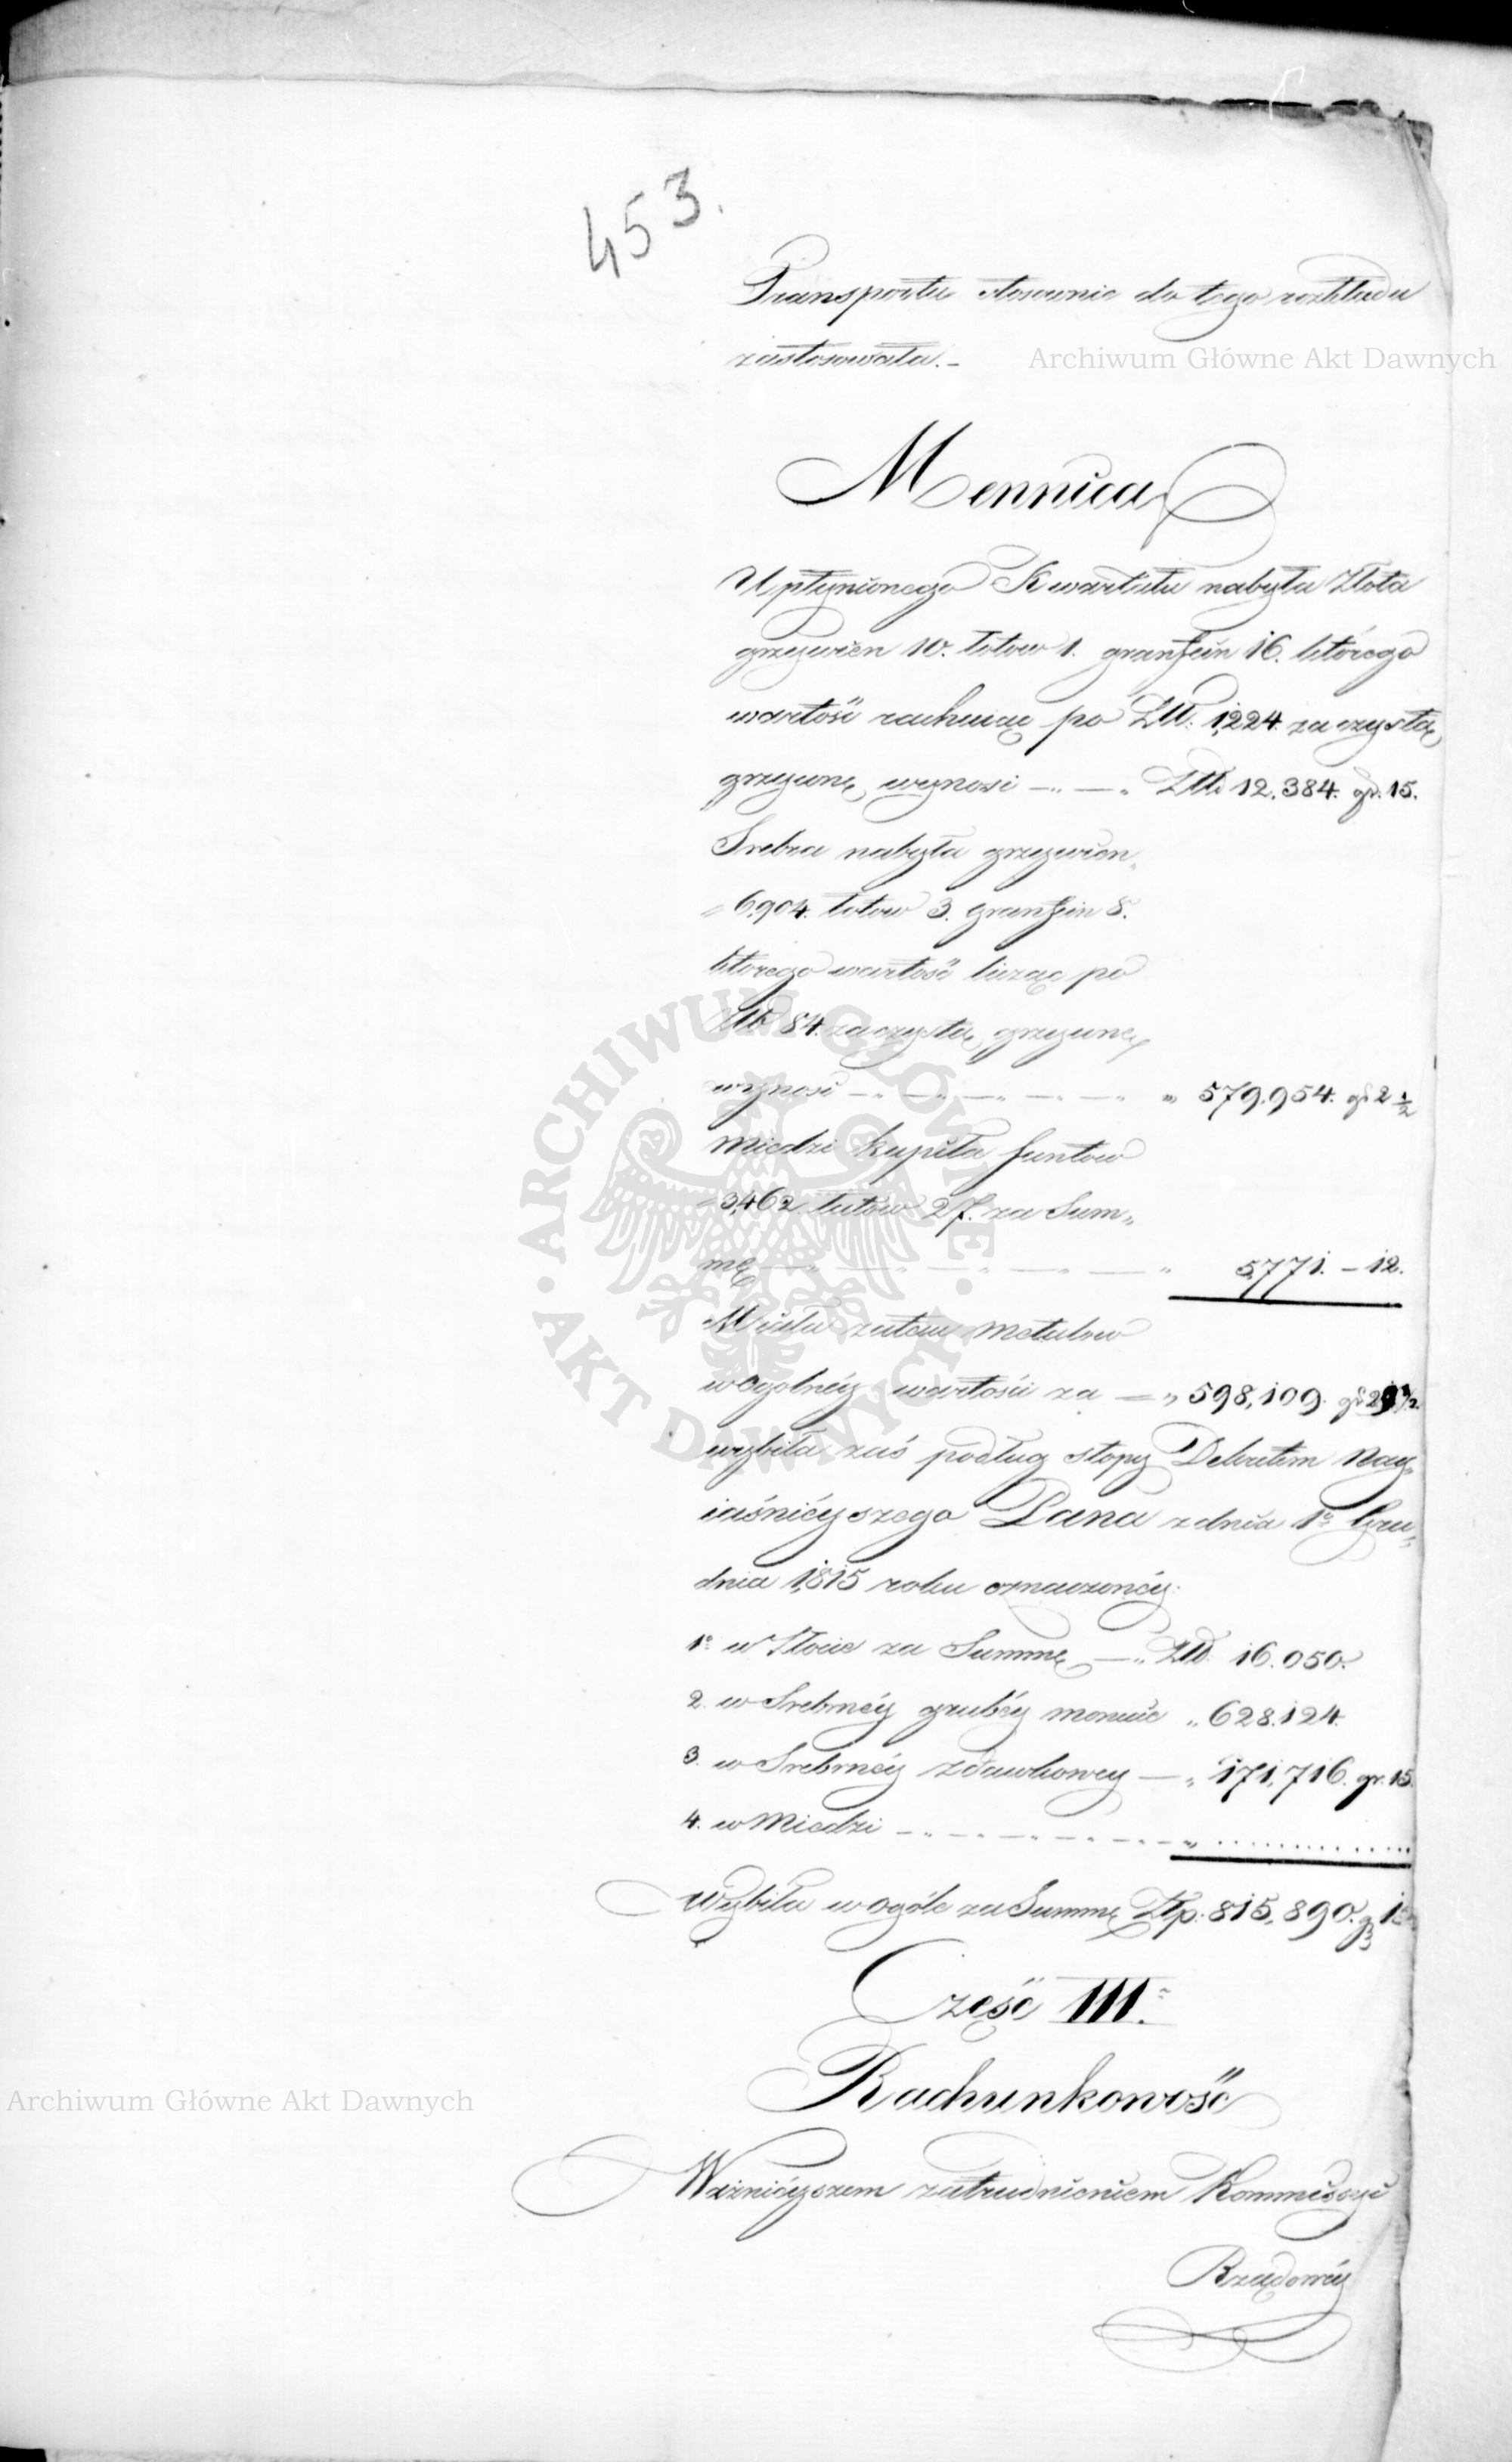 453.
Transportu stosownie do tego rozkładu
zastosowała.-
Archiwum Główne Akt Dawnych
Mennica
Upłynionego Kwartału nabyła Złota
grzywien 10. łotow 1. granfein 16. którego
wartość rachuiąc po Złt. 1,224. za czystą
grzywnę wynosi —„—„ Złt. 12,384. gr. 15.
Srebra nabyła grzywien„
„6,904. łotow 3. granfein 8.
ktorego wartość licząc po
Złt. 84. za czystą grzywnę
wynosi —„—„—„—„—„ „ 579,954. gr 2 1/2
Miedzi kupiła funtow
„3,462. łutów 27. za Sum„
mę —„—„—„—„—„ 5,771. – 12.
Miała zatem Metalow
w ogolnéy wartości za —„ 598,109. gr 29 1/2.
wybiła zaś podług stopy Dekretem Nay„
iaśnieyszego Pana z dnia 1º Gru„
dnia 1,815 roku oznaczonéy:
1º w Złocie za Summę —„ Złt. 16.050.
2. w Srebrnéy grubéy monecie „ 628.124.
3. w Srebrnéy zdawkowey —„ 171,716. gr. 15.
4. w Miedzi –„–„–„–„–„–„ ............
Wybiła w ogóle za Summę Złp. 815,890. gr 15
Część III.
Rachunkowość
Archiwum Główne Akt Dawnych
Ważnieyszem zatrudnieniem Kommissyi
Rządowéy
ARCHIWUM GŁÓWNE · AKT DAWNYCH ·